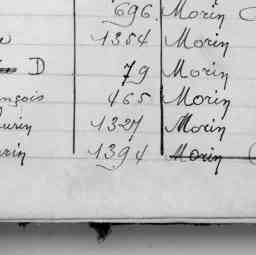 696. Morin
1354 Morin
D 79 Morin
nçois 465 Morin
urin 1327 Morin
rin 1394 Morin